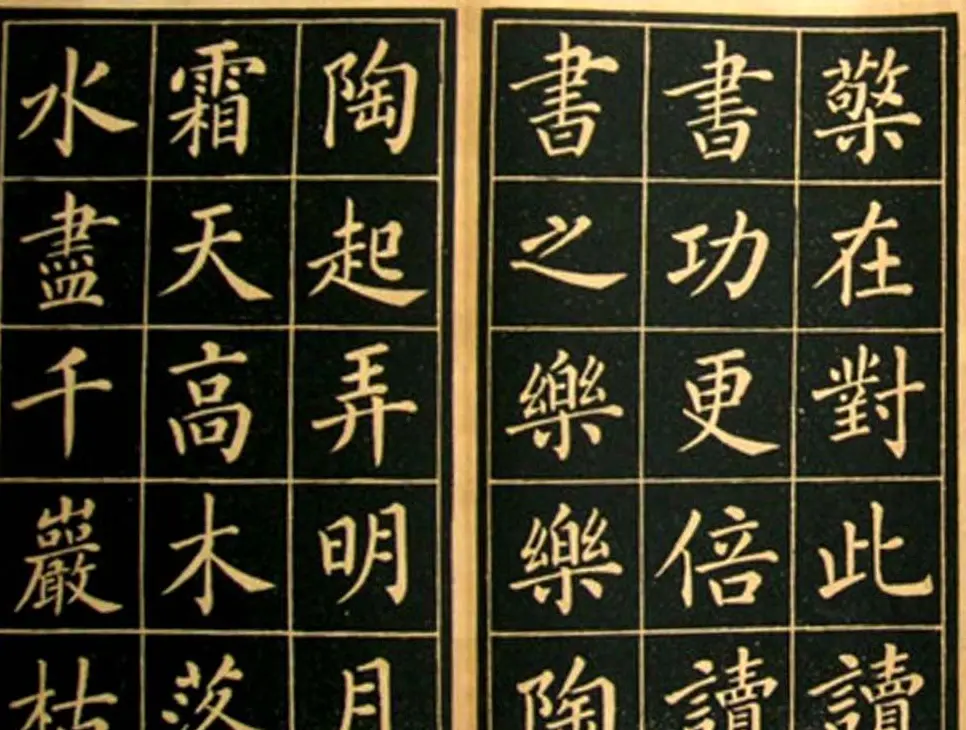 檠在對此讀
書功更倍讀
書之樂樂陶
陶起弄明月
霜天高木落
水盡千巖枯